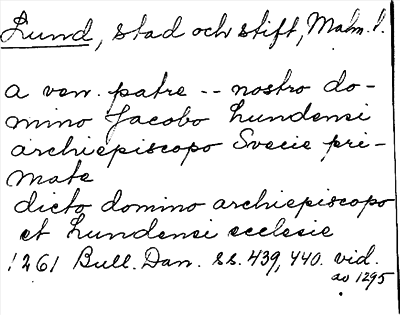 Lund, stad och stift, Malm. l.
a ven. patre -- nostro do-
mino Jacobo Lundensi
archiepiscopo Svecie pri-
mate
dicto domino archiepiscopo
et Lundensi ecclesie
1261 Bull. Dan. ss. 439, 440. vid.
ao 1295